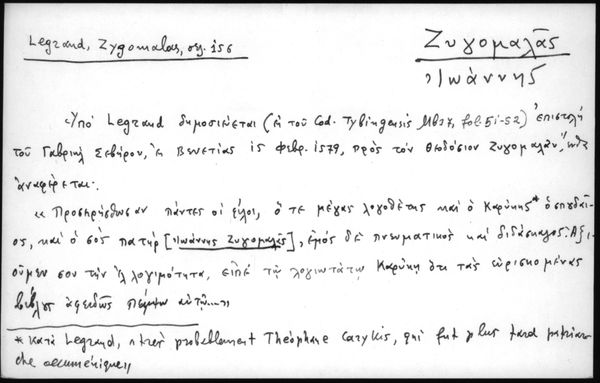 Legrand, Zygomalas, σελ. 156
Ζυγομαλᾶς
Ἰωάννης
Ὑπό Legrand δημοσιεύεται (ἐκ τοῦ Cod. Tybingensis Mb37, fol. 51-52) ἐπιστολή
τοῦ Γαβριήλ Σεβήρου, ἐκ Βενετίας 15 Φεβρ. 1579, πρός τόν Θεοδόσιον Ζυγομαλᾶν, ἔνθα
ἀναφέρεται:
«Προσῃρήσθωσαν πάντες οἱ φίλοι, ὅ τε μέγας λογοθέτης καί ὁ Καρύκης* ὁ σπουδαῖ-
ος, καί ὁ σός πατήρ [Ἰωάννης Ζυγομαλᾶς], ἐμός δέ πνευματικός καί διδάσκαλος. Ἀξι-
οῦμέν σου τήν ἐλλογιμότητα, εἰπέ τῷ λογιωτάτῳ Καρύκῃ ὅτι τάς εὑρισκομένας
βίβλους ἀφειδῶς πέμψω αὐτῷ...»
* κατά Legrand, «très probablement Théophane Carykis, qui fut plus tard patriar-
che œcuménique»